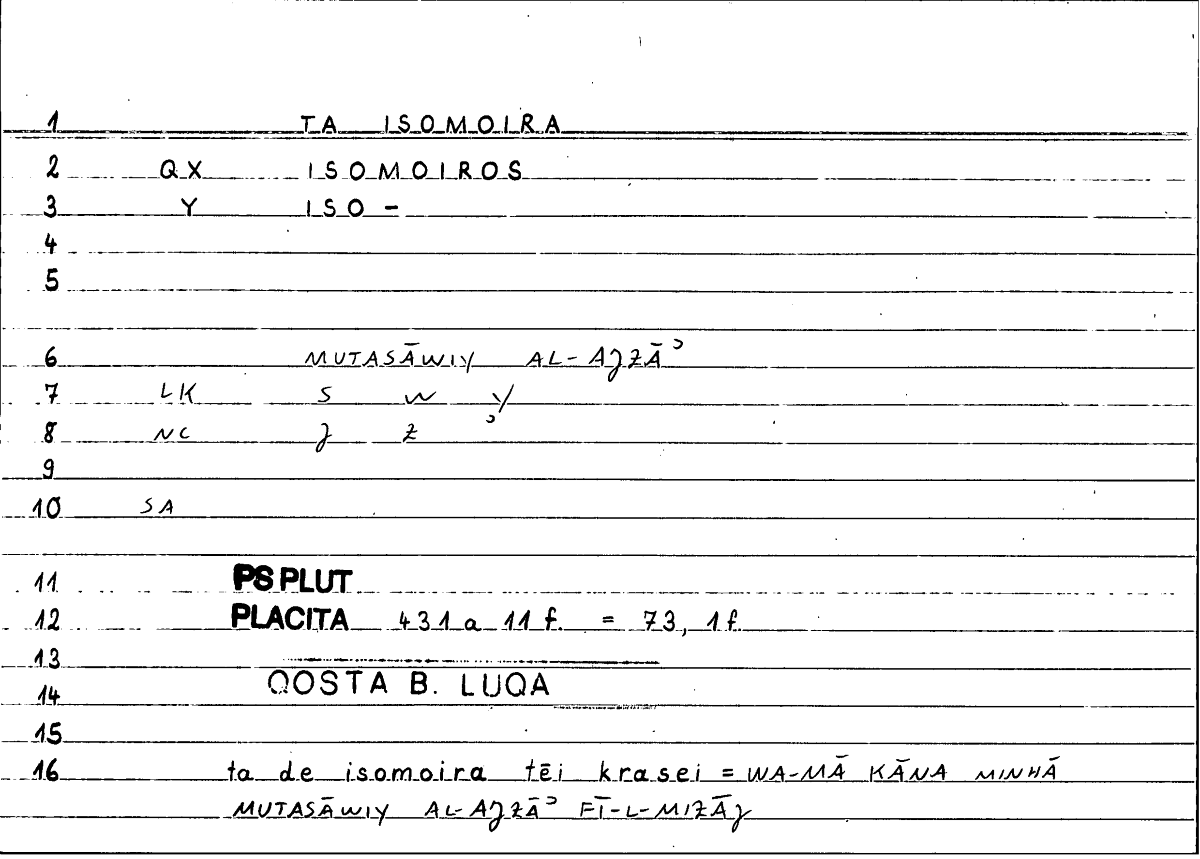 1 TA ISOMOIRA
2 QX ISOMOIROS
3 Y ISO -
4
5
6 MUTASĀWIY AL-AJZĀʾ
7 LK S W Y
8 NC J Z ʾ
9
10 SA
11 PS PLUT
12 PLACITA 431 a 11 f. = 73, 1 f.
13
14 QOSTA B. LUQA
15
16 ta de isomoira tēi krasei = WA-MĀ KĀNA MINHĀ
MUTASĀWIY AL-AJZĀʾ FĪ-L-MIZĀJ